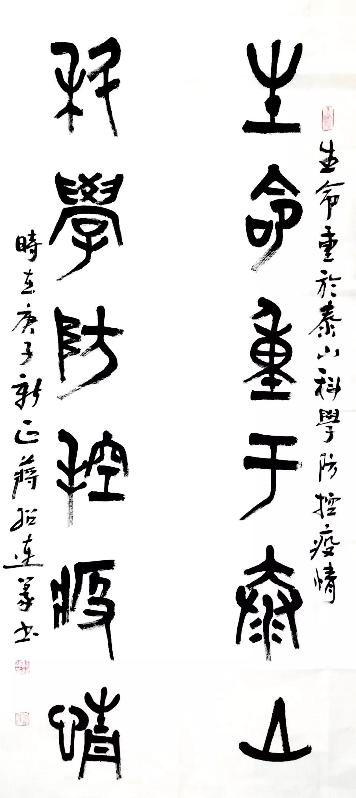 生命重於泰山科學防控疫情
生命重于泰山
科學防控疫情
時在庚子新正蔣紹連篆书